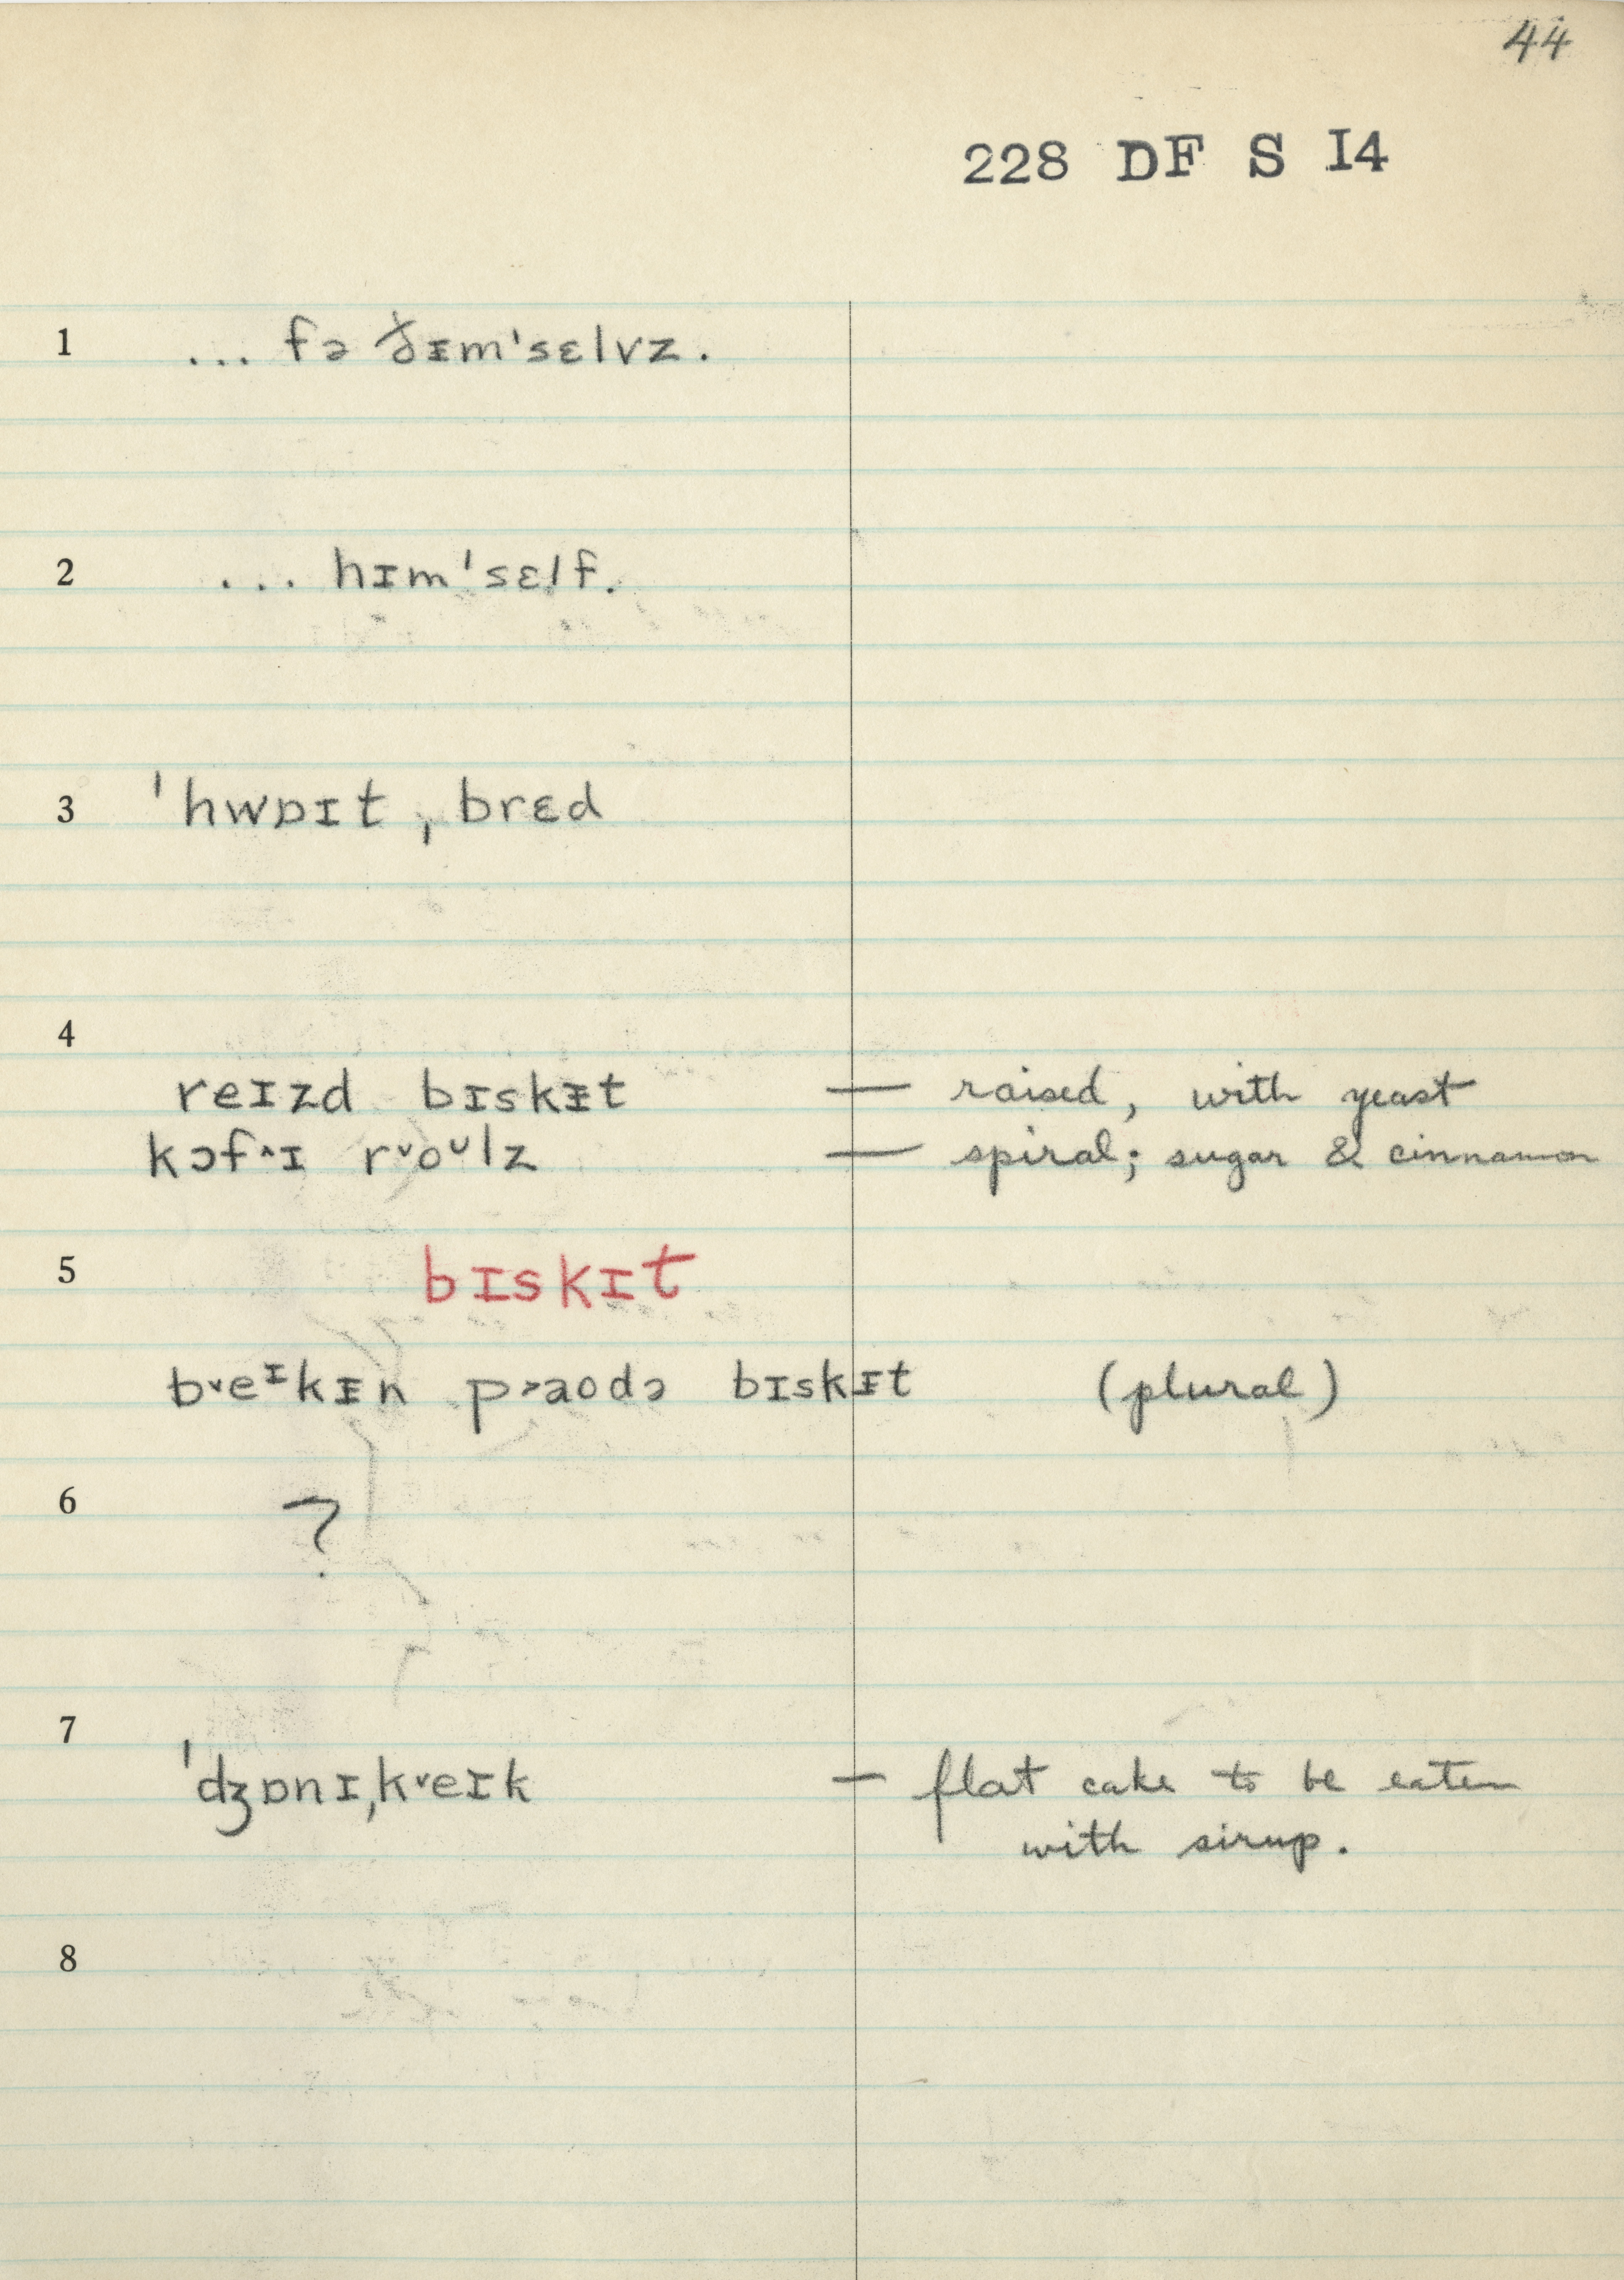 44
228 DF S I4
1 ... fə ðᵻm'sɛlvz.
2 ... hɪm'sɛlf.
3 ˈhwɒɪt ˌbrɛd
4
reɪzd bɪskᵻt — raised, with yeast
kɔf˄ɪ r˅oᶸlz — spiral; sugar & cinnamon
5 bɪskɪt
b˅eᶦkᵻn p˃aodə bɪskᵻt (plural)
6 ?
7
ˈdʒɒnɪˌk˅eɪk — flat cake to be eaten
with sirup.
8